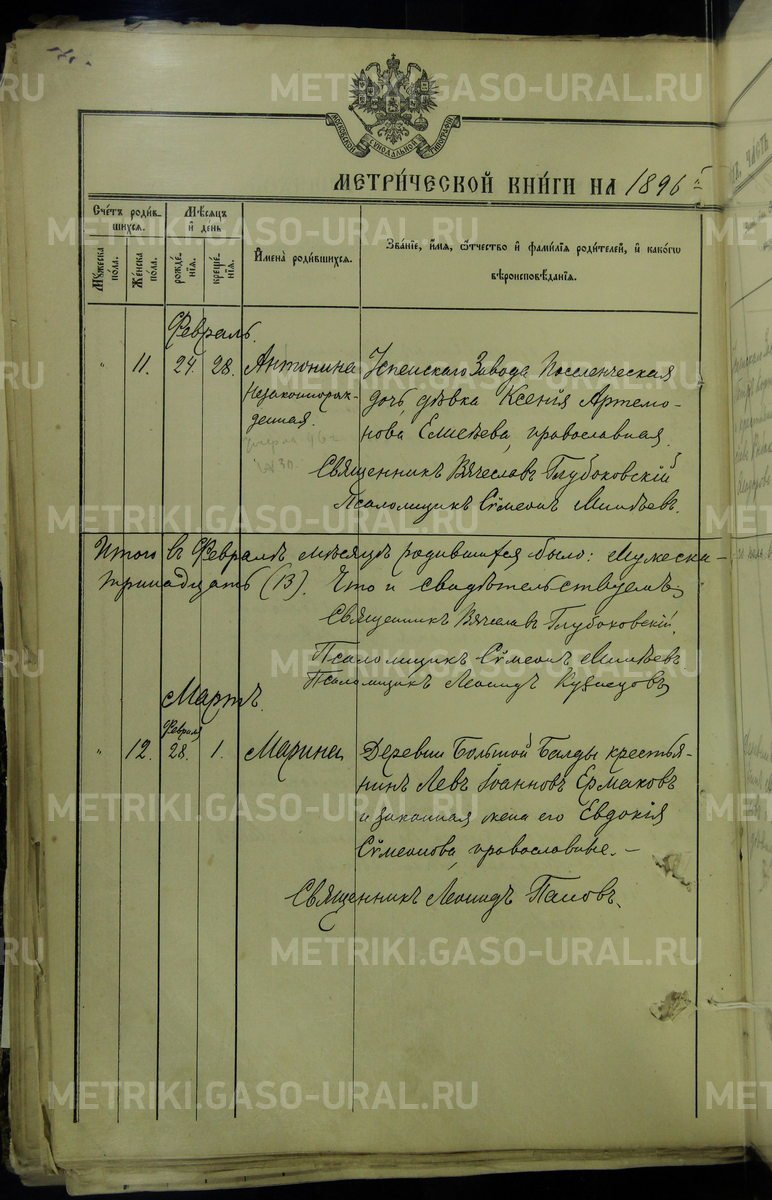 МОСКОВСКОЙ СѴНОДАЛЬНОЙ ТИПОГРАФІИ
МЕТРИ́ЧЕСКОЙ КНИ́ГИ НА 1896 г.
Сче́тъ роди́вшихся.
Мꙋ́жеска по́ла.
Же́нска по́ла.
Мѣ́сяцъ и҆ день
рожде́нїѧ.
креще́нїѧ.
И҆мена̀ роди́вшихсѧ.
Зва́нїе, и҆́мѧ, ѻ҆́тчество и҆ фами́лїѧ роди́телей, и҆ како́гѡ
вѣроисповѣ́данїѧ.
Февраль.
" 11. 24. 28. Антонина Успенскаго Завода Поселенческая
Незаконнорож- дочь, дѣвка Ксенія Артемо-
денная. нова Елисѣева, православная.
№ 30.
Священникъ Вячеславъ Глубоковскій
Псаломщикъ Сѵмеонъ
Итого въ Февралѣ мѣсяцѣ родившихся было: мужеска-
тринадцать (13). Что и свидѣтельствуемъ:
Священникъ Вячеславъ Глубоковскій.
Псаломщикъ Сѵмеонъ
Псаломщикъ Леонидъ Кузнецовъ
Мартъ.
Февраля
" 12. 28. 1. Марина Деревни Большой Балды крестья-
нинъ Левъ Іоанновъ Ермаковъ
и законная жена его Евдокія
Сѵмеонова, православные. –
Священникъ Леонидъ Пановъ.
METRIKI.GASO-URAL.RU